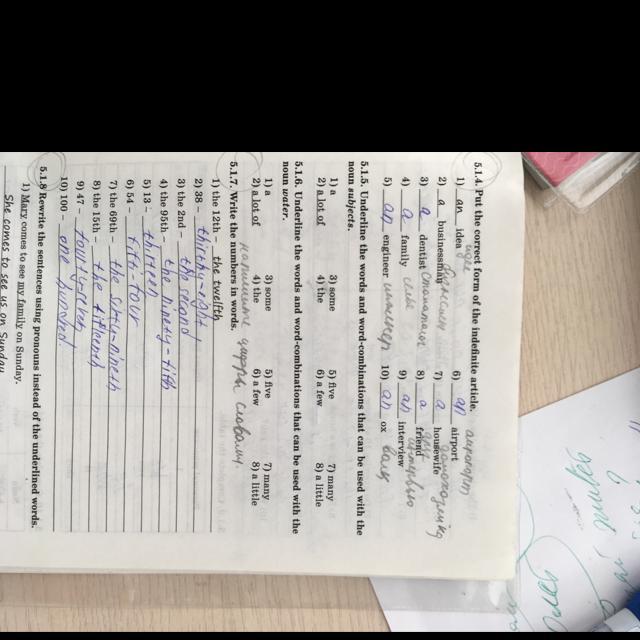 5.1.4 Put the correct form of the indefinite article.
аэропорт
1) an idea идея 6) an airport
2) a businessman бизнесмен 7) a housewife домохозяйка
3) a dentist 8) a friend друг
4) a family семья 9) an interview интервью
5) an engineer инженер 10) an ox
5.1.5. Underline the words and word-combinations that can be used with the
noun subjects.
1) a 3) some 5) five 7) many
2) a lot of 4) the 6) a few 8) a little
5.1.6. Underline the words and word-combinations that can be used with the
noun water.
1) a 3) some 5) five 7) many
2) a lot of 4) the 6) a few 8) a little
напишите цифры словами.
5.1.7. Write the numbers in words.
1) the 12th – the twelfth
2) 38 –
3) the 2nd – the second
4) the 95th – the ninety-fifth
5) 13 – thirteen
6) 54 – fifty-four
7) the 69th – the sixty-nineth
8) the 15th – the fifteenth
9) 47 – fourty-seven
10) 100 – one hundred.
5.1.8 Rewrite the sentences using pronouns instead of the underlined words.
1) Mary comes to see my family on Sunday.
She comes to see us on Sunday